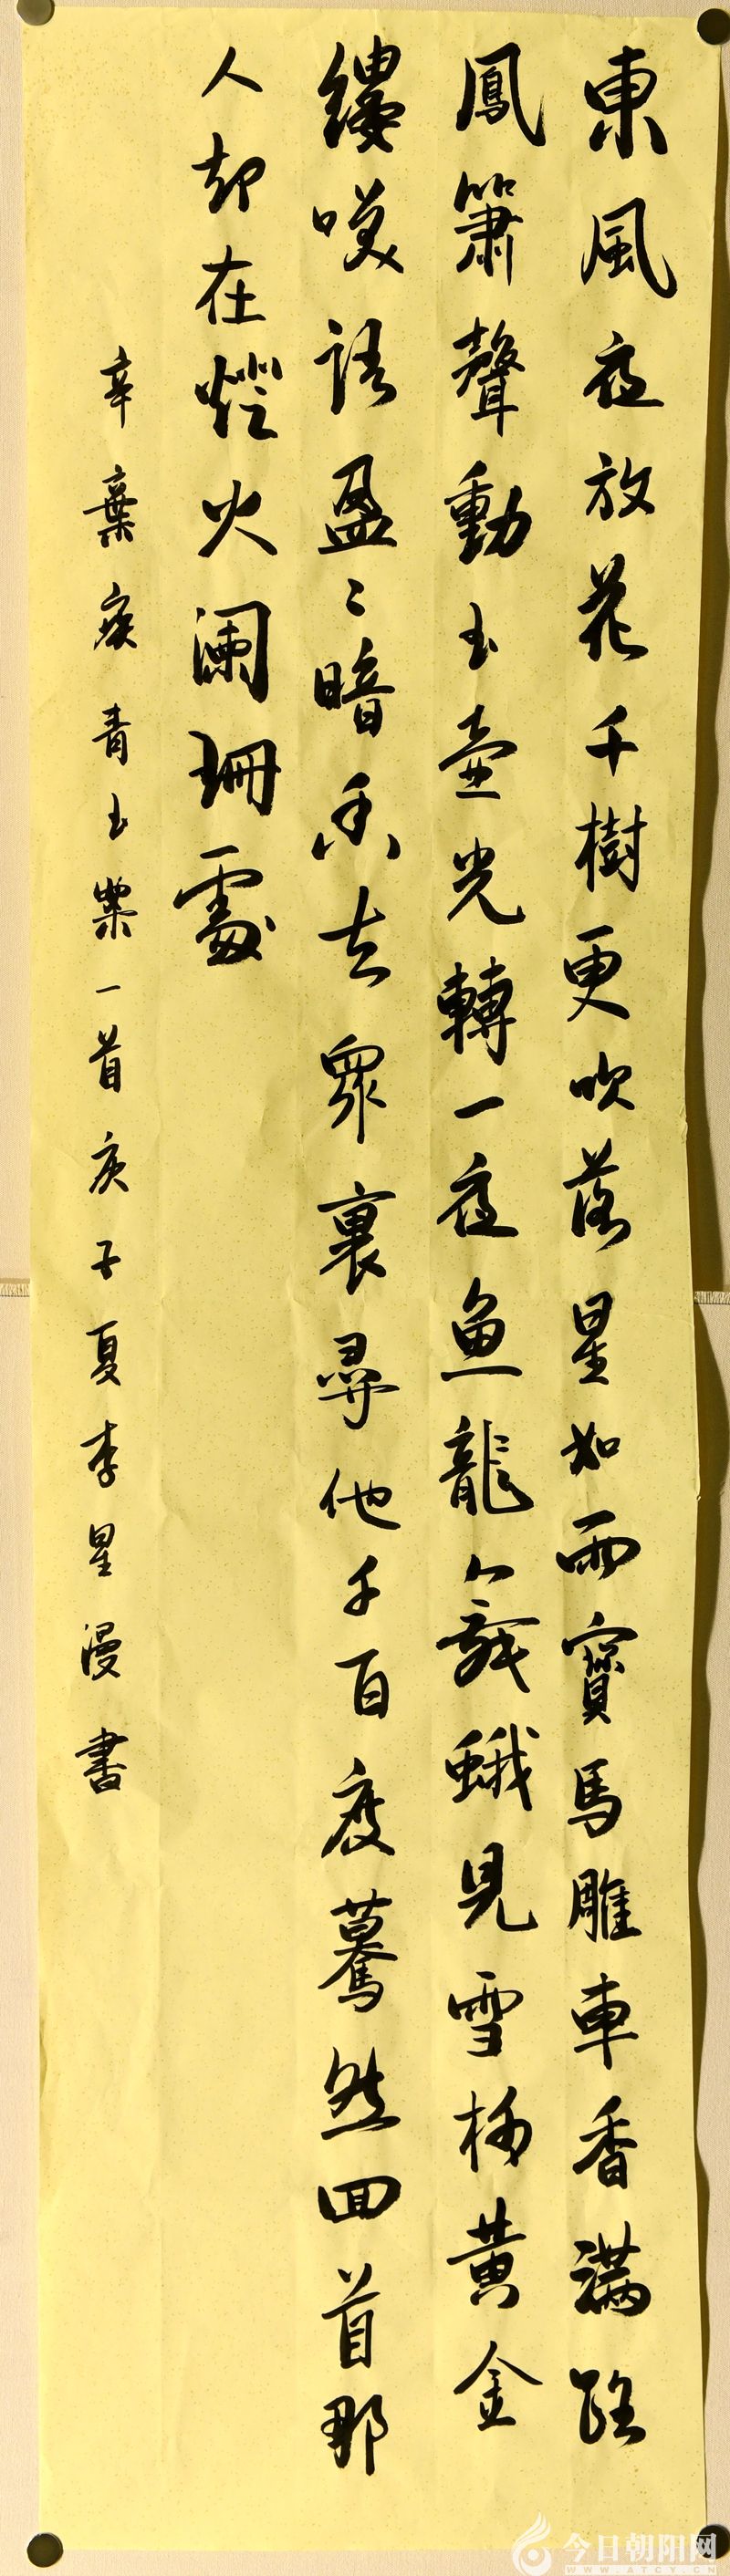 東風夜放花千樹更吹落星如雨寶馬雕車香滿路
鳳簫聲動玉壺光轉一夜魚龍舞蛾兒雪柳黃金
縷咲語盈〻暗香去衆裏尋他千百度驀然回首那
人却在燈火澜珊處
辛棄疾青玉案一首庚子夏李星漫書
今日朝阳网